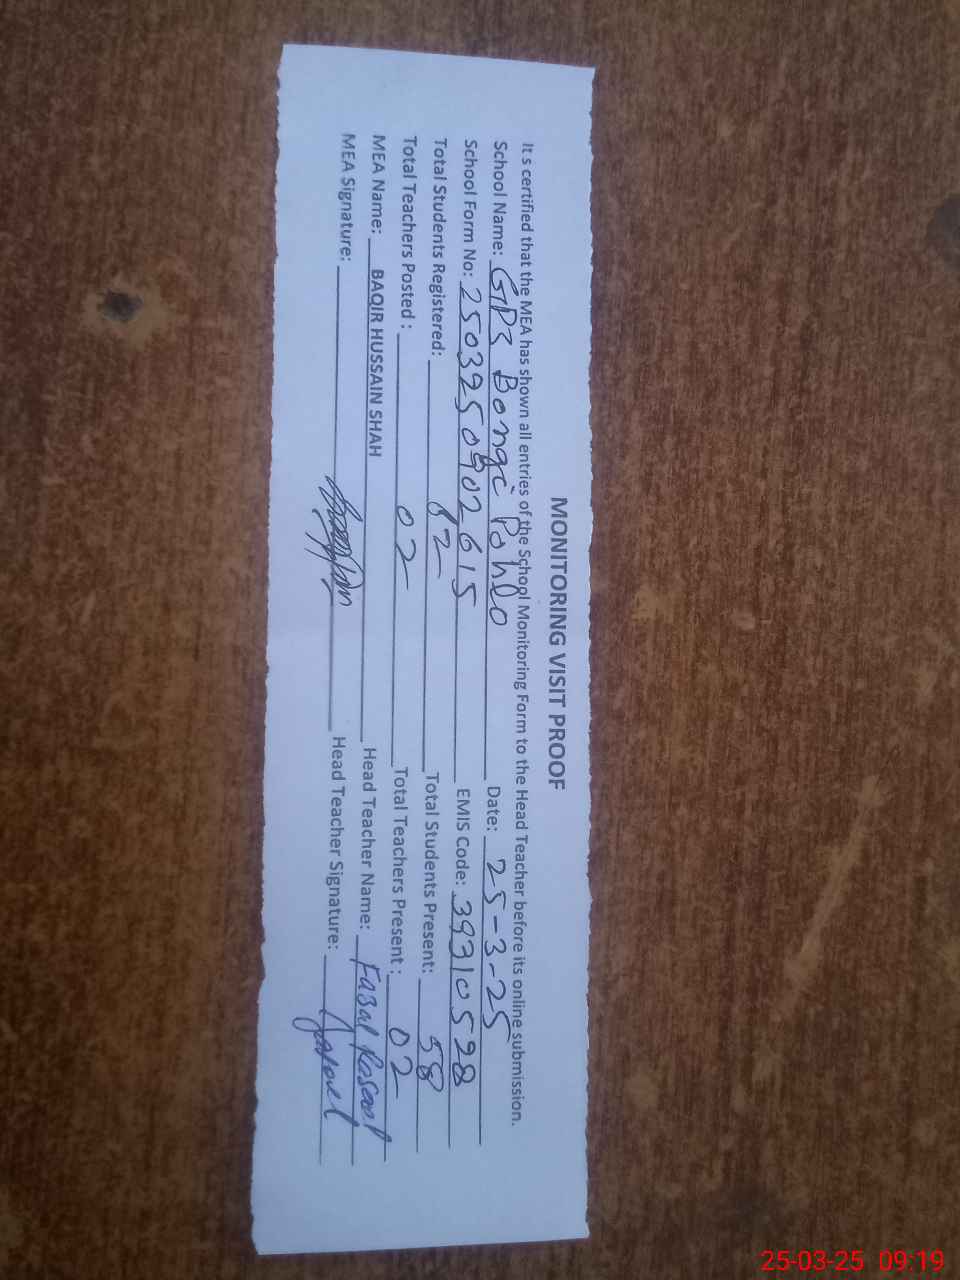 MONITORING VISIT PROOF
It s certified that the MEA has shown all entries of the School Monitoring Form to the Head Teacher before its online submission.
School Name: GPS Bongi Pohlo Date: 25-3-25
School Form No: 2503250902615 EMIS Code: 39310598
Total Students Registered: 82 Total Students Present: 58
Total Teachers Posted : 02 Total Teachers Present : 02
MEA Name: BAQIR HUSSAIN SHAH Head Teacher Name: Fazal Rasool
MEA Signature: Head Teacher Signature:
25-03-25 09:19